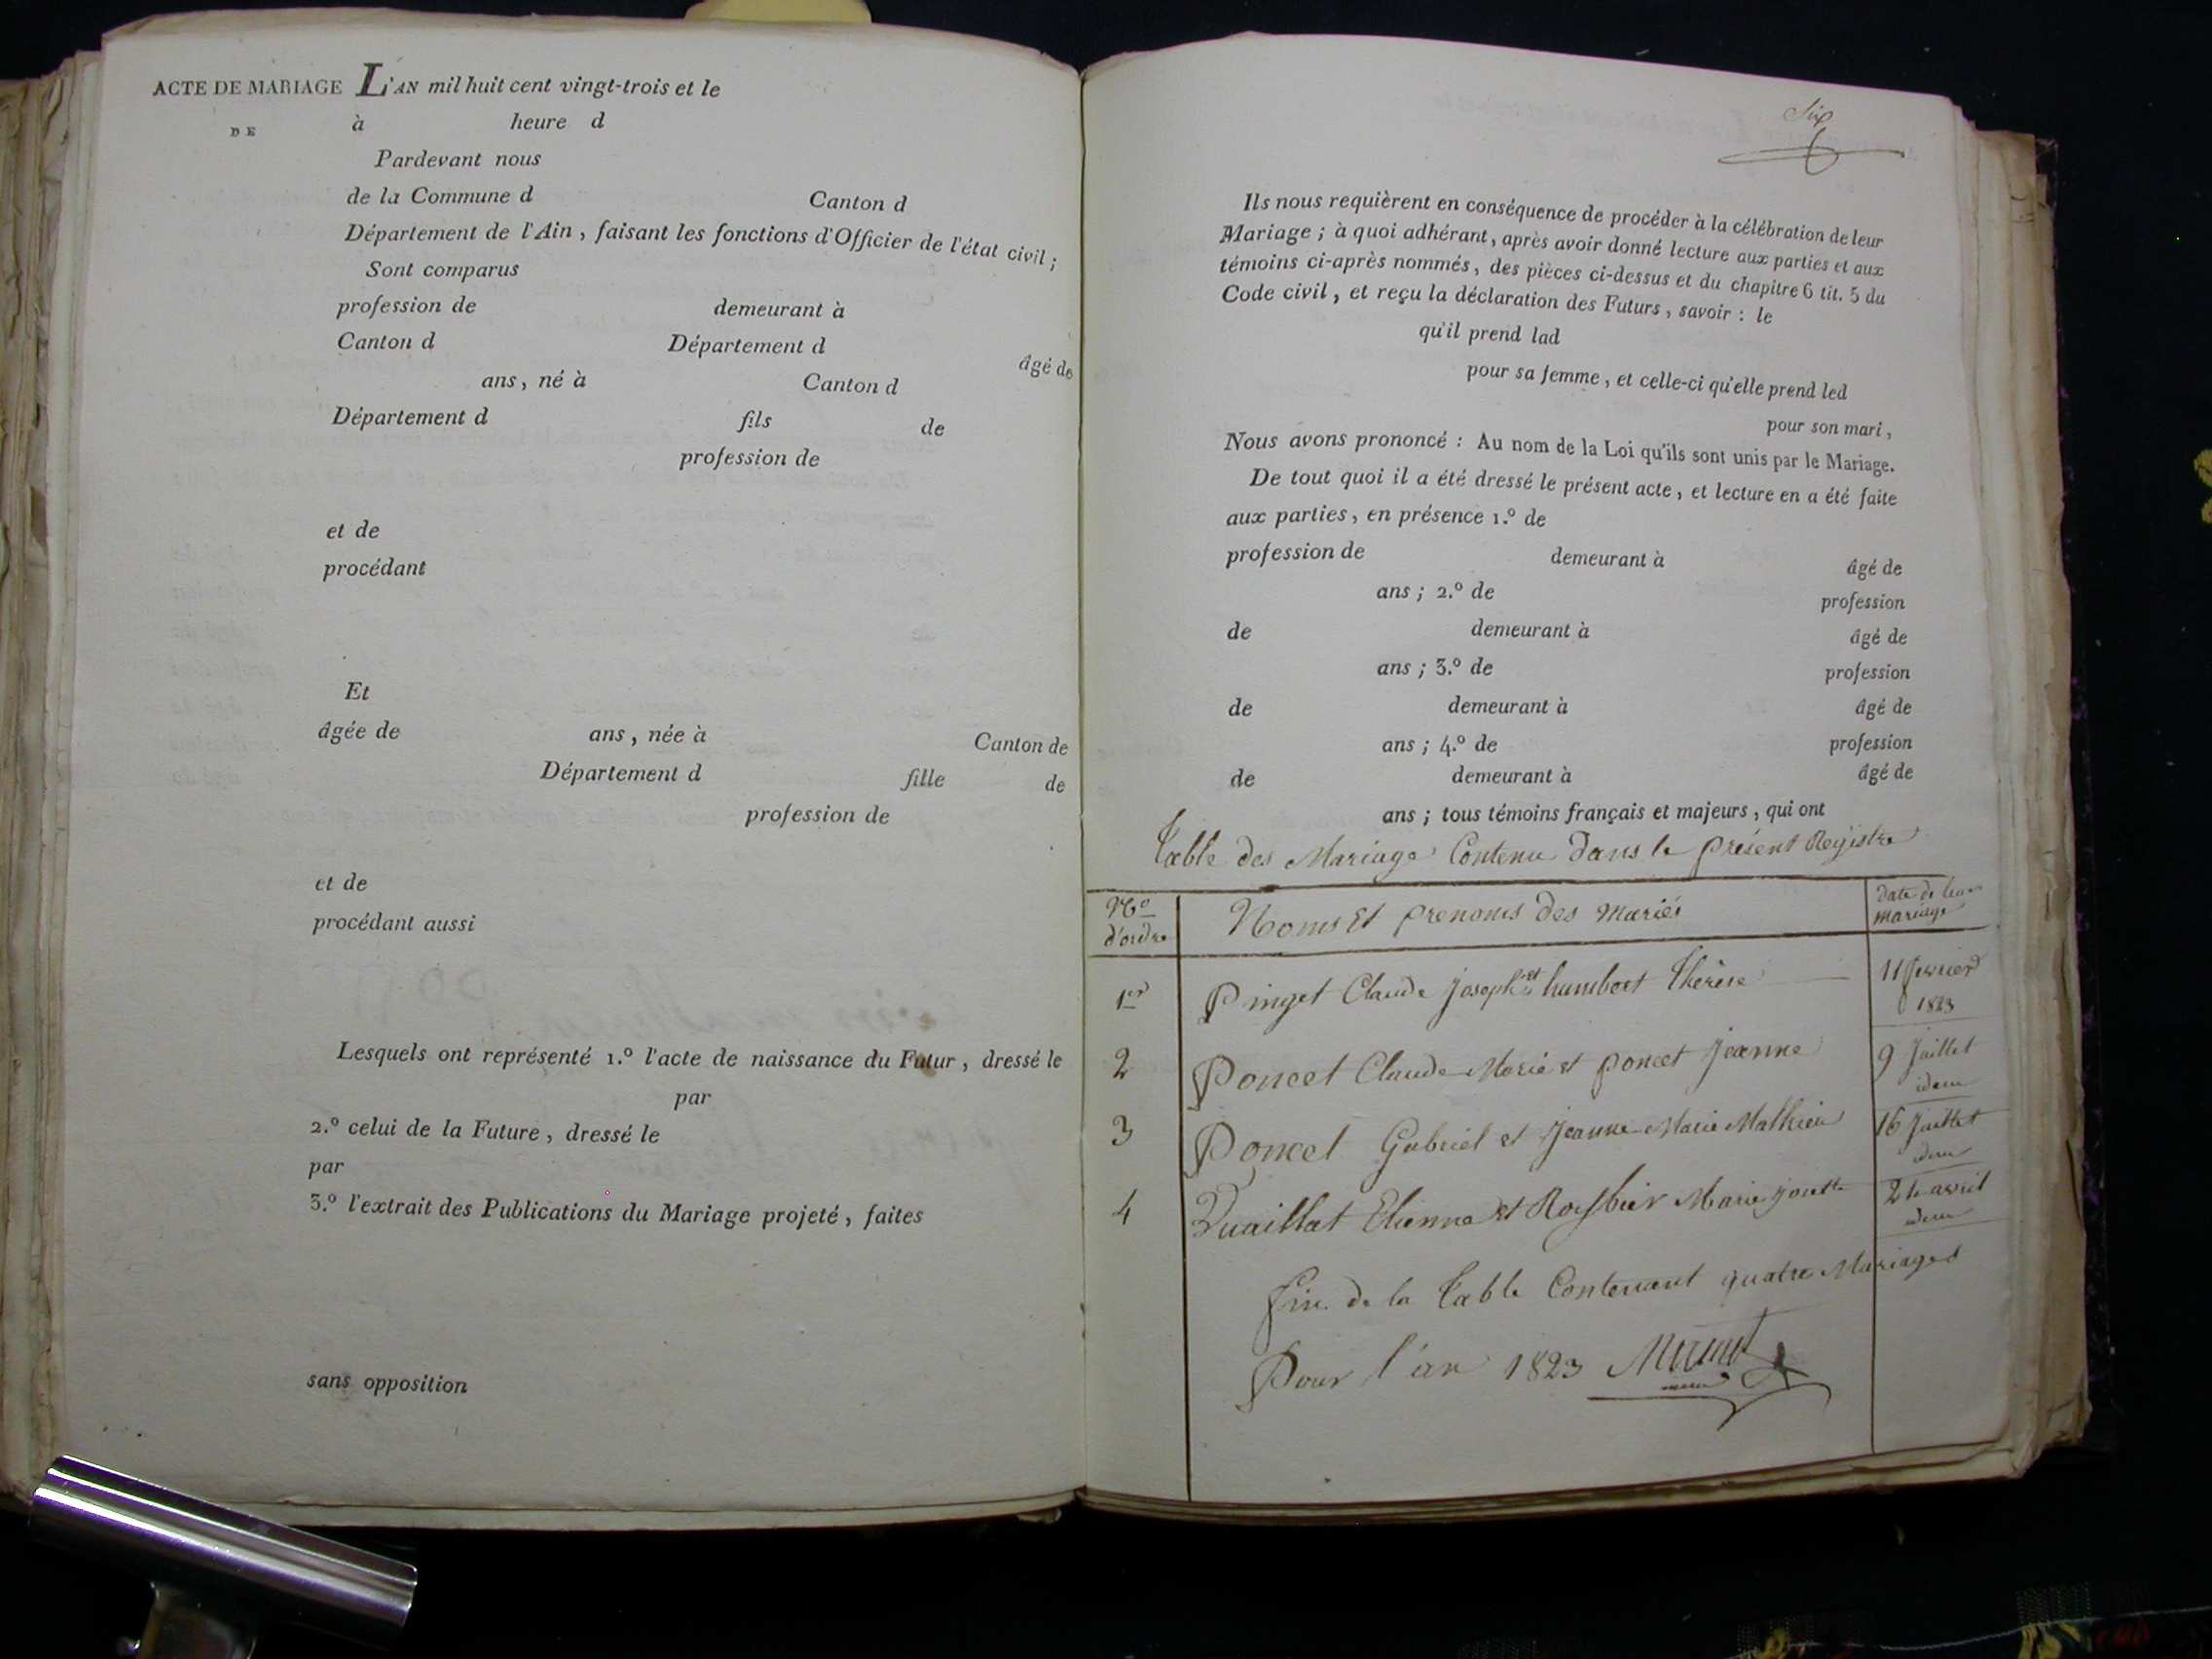 ACTE DE MARIAGE L'AN mil huit cent vingt-trois et le
DE à heure d
Pardevant nous
de la Commune d Canton d
Département de l'Ain, faisant les fonctions d'Officier de l'état civil;
Sont comparus
profession de demeurant à
Canton d Département d âgé de
ans, né à Canton d
Département d fils de
profession de
et de
procédant
Et
âgée de ans, née à Canton de
Département d fille de
profession de
et de
procédant aussi
Lesquels ont représenté 1.º l'acte de naissance du Futur, dressé le
par
2.º celui de la Future, dressé le
par
3.º l'extrait des Publications du Mariage projeté, faites
sans opposition
Six
Ils nous requièrent en conséquence de procéder à la célébration de leur
Mariage; à quoi adhérant, après avoir donné lecture aux parties et aux
témoins ci-après nommés, des pièces ci-dessus et du chapitre 6 tit. 5 du
Code civil, et reçu la déclaration des Futurs, savoir: le
qu'il prend lad
pour sa femme, et celle-ci qu'elle prend led
pour son mari,
Nous avons prononcé: Au nom de la Loi qu'ils sont unis par le Mariage.
De tout quoi il a été dressé le présent acte, et lecture en a été faite
aux parties, en présence 1.º de
profession de demeurant à âgé de
ans; 2.º de profession
de demeurant à âgé de
ans; 3.º de profession
de demeurant à âgé de
ans; 4.º de profession
de demeurant à âgé de
ans; tous témoins français et majeurs, qui ont
Table des Mariage Contenu Dans le présent Registre
Nº d'ordre Noms Et prenoms Des Mariés date de leur mariage
1er Pinget Claude Joseph et humbert Thérèse 11 fevrier 1823
2 Poncet Claude Marie et poncet Jeanne 9 Juillet idem
3 Poncet Gabriel et Jeanne Marie Mathieu 16 Juillet idem
4 Vuaillat Etienne et Marie avril idem
fin de la Table Contenant quatre Mariages
Pour l'an 1823